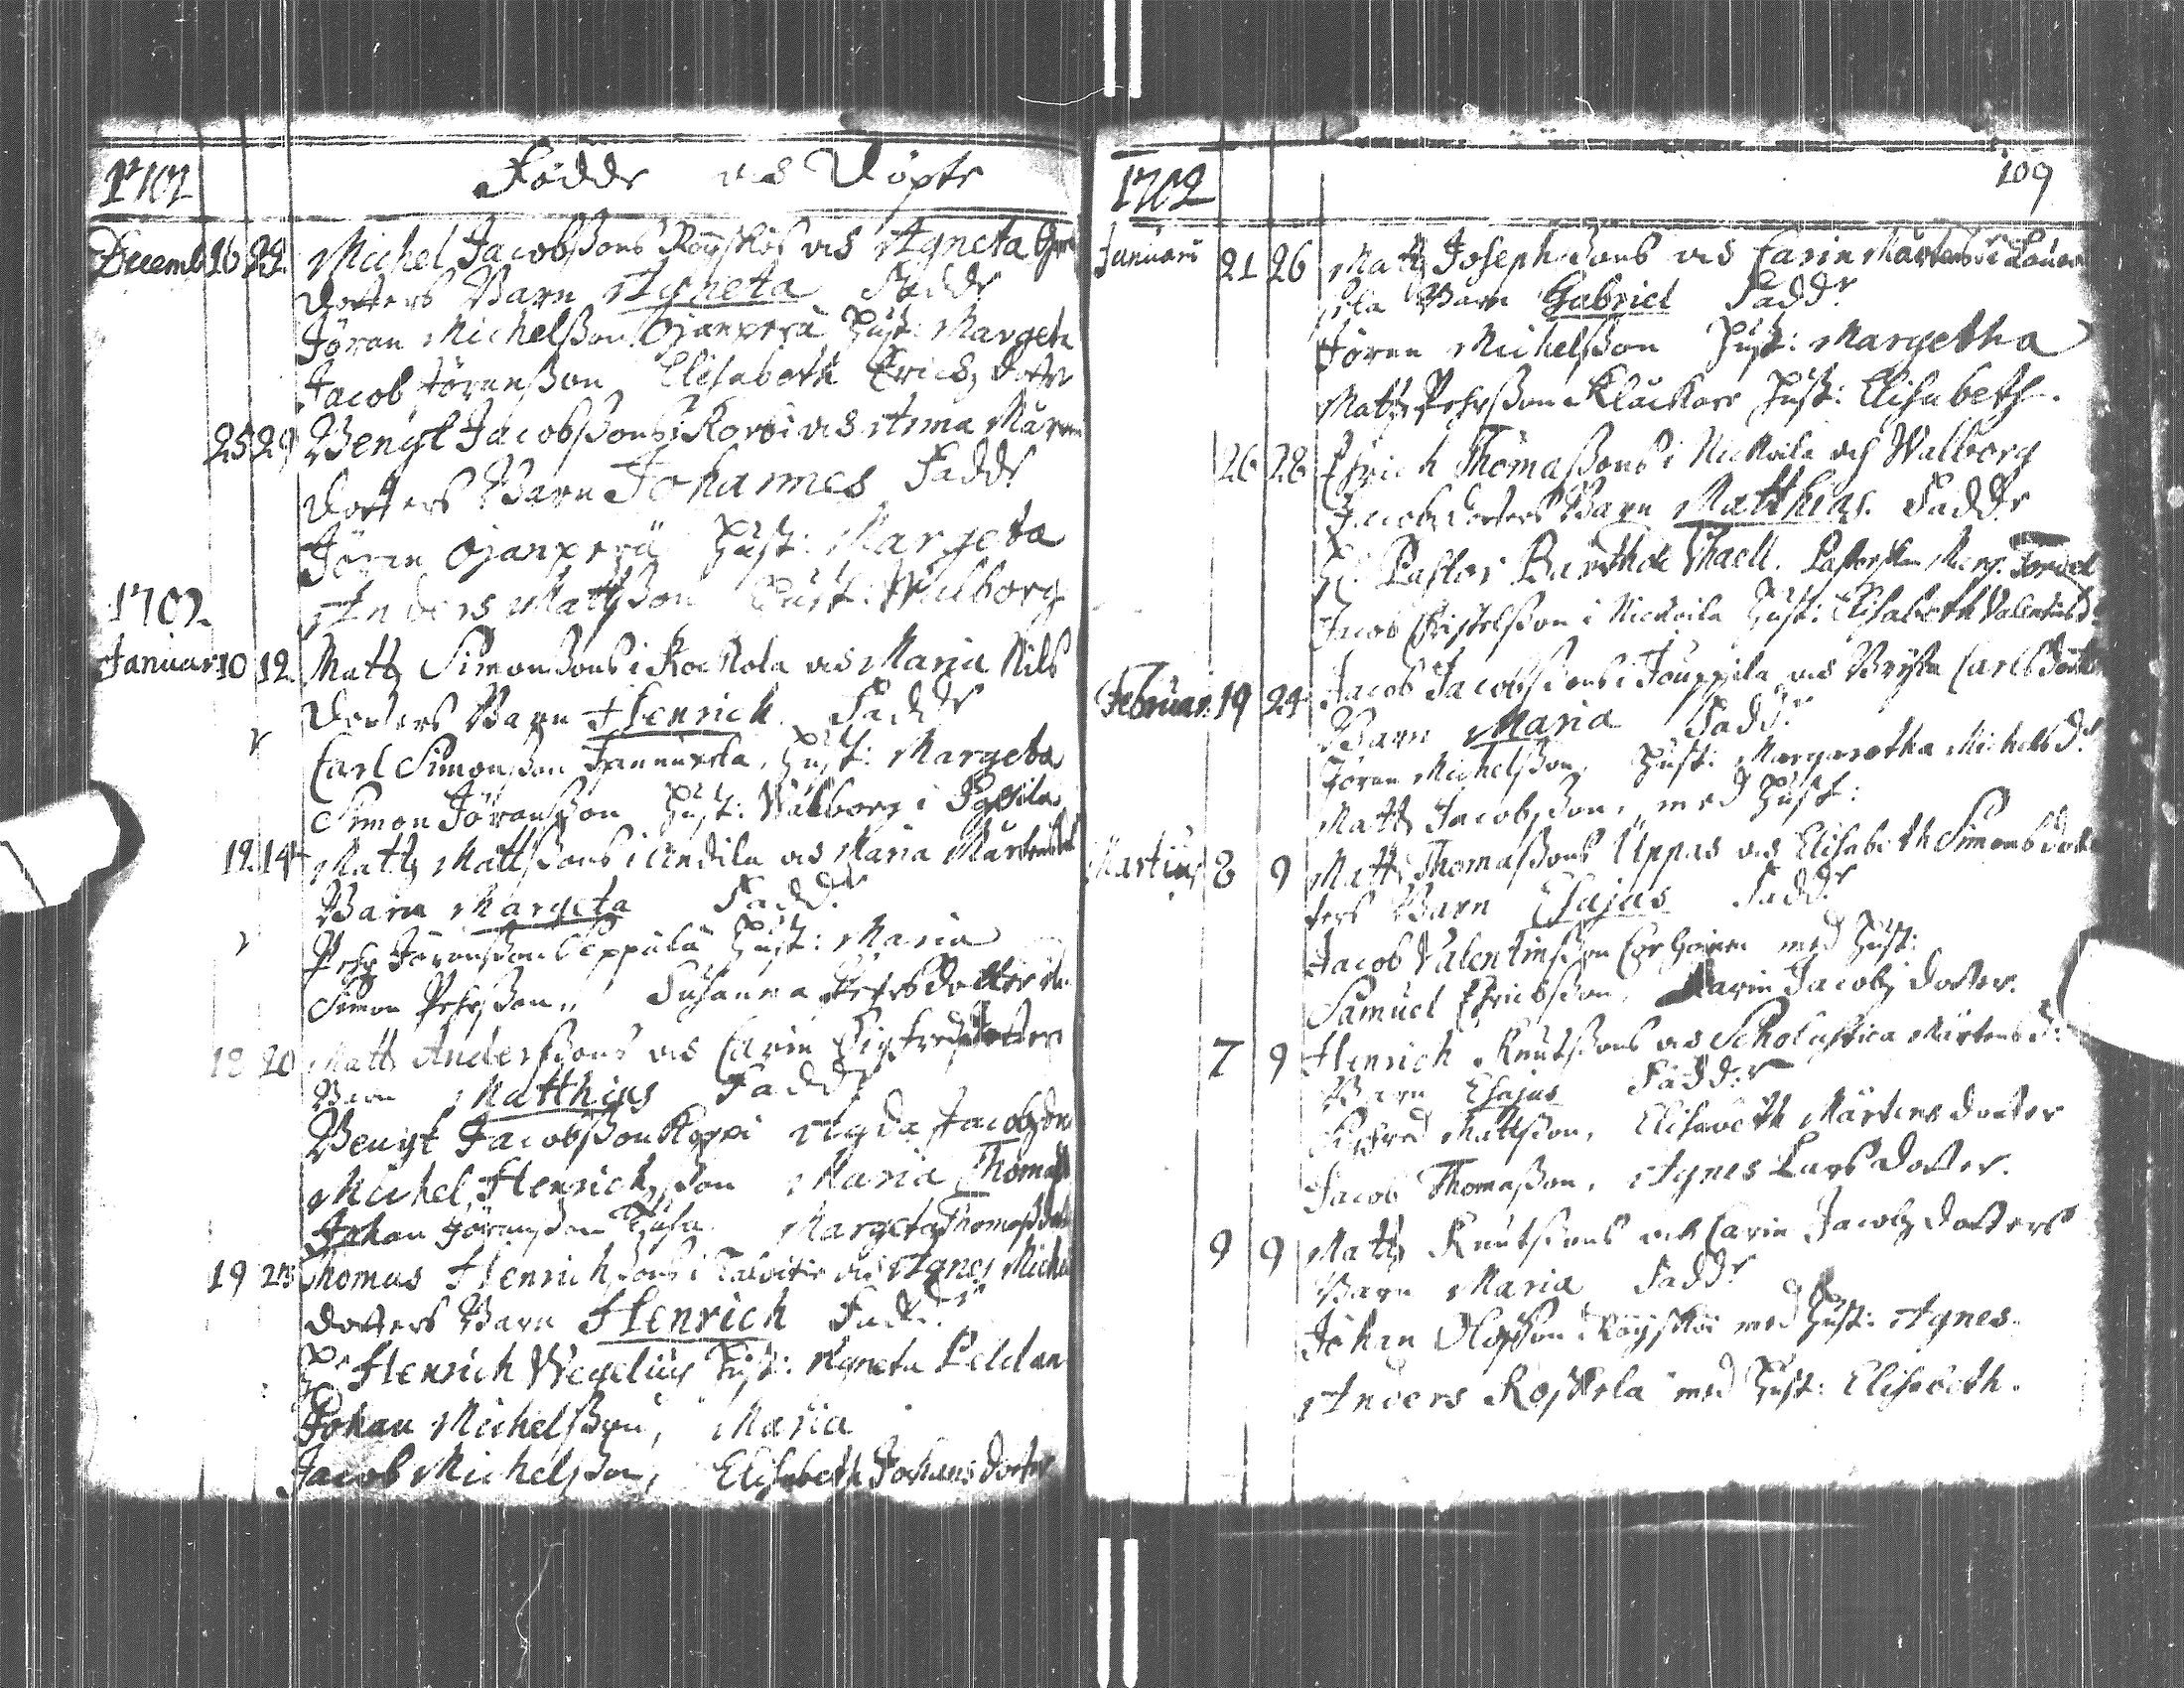 1701 Födde och Döpte
Decemb 16 22 Michel Jacobßons Röyskös och Agneta
dotters Barn Agneta Fadd
Jöran Michelßon Ojanperä Hust: Margeta
Jacob Jöranßon Elisabeth Erichz dotter
25 29 Bengt Jacobßons i Korpi och Anna
dotters Barn Johannes Fadd
Jöran Ojanperä Hust: Margeta
Anders Mattßon Hust: Walborg
1702
Januar 10 12 Matz Simonßons i Kockola och Maria Nils
dotters Barn Henrich Fadd
Carl Simonßon Hust: Margeta
Simon Jöranßon Hust: Walborg i
12 14 Matz Mattßons i Andila och Maria Mårtensdot
Barn Margeta Fadd
Pehr Jöranßon Seppälä Hust: Maria
Simon Pehrßon, Susanna Pehrsdotter
18 20 Matts Anderßons och Carin Sigfredzdotter
Barn Matthias Fadd
Bengt Jacobßon Korpi Agda Jacobzdot
Michel Henrichzßon Maria Thomas
Johan Göranßon Margeta Thomasdot
19 25 Thomas Henrichßons i Talvitie och Agnes Michel
dotters Barn Henrich Fadd
Hr Henrich Wegelius Hust: Agneta Peldan
Johan Michelßon, Maria
Jacob Michelßon, Elisabeth Johansdotter
1702 109
Januari 21 26 Matz Josephßons och Carin Mårtensd i Lauro
sela Barn Gabriel Fadd
Jören Michelßon Hust: Margetha
Matz Pehrßon Klåckare Hust: Elisabeth.
26 28 Ehrich Thomaßons i Nickula och Walborg
Jacobz dotters Barn Matthias. Fadd
Hr Pastor Barthol Vhaell. Pastorskan Marg. Fordel
Jacob Christelßon i Nickula Hust: Elisabeth Valentinsd
Februar. 19 24 Jacob Jacobßons i Jouppila och Bryta Carlsdotter
Barn Maria Fadd
Jören Michelßon, Hust: Margaretha Michelsd
Matz Jacobßon, med Hust:
Martius 8 9 Matts Thomaßons Uppas och Elisabeth Simonsdot
ters Barn Esajas Fadd
Jacob Valentinßon Corhoinen med Hust:
Samuel Ehrichßon, Karin Jacobz dotter.
7 9 Henrich Knutßons och Scholastica Mårtensd:
Barn Esajas Fadd
Sigfred Mattßon, Elisabeth Mårtensdotter
Jacob Thomaßon, Agnes Larsdotter.
9 9 Matz Knutßons och Carin Jacobz dotters
Barn Maria Fadd
Johan Olofßon Röyskö med Hust: Agnes.
Anders Roskela med Hust: Elisabeth.